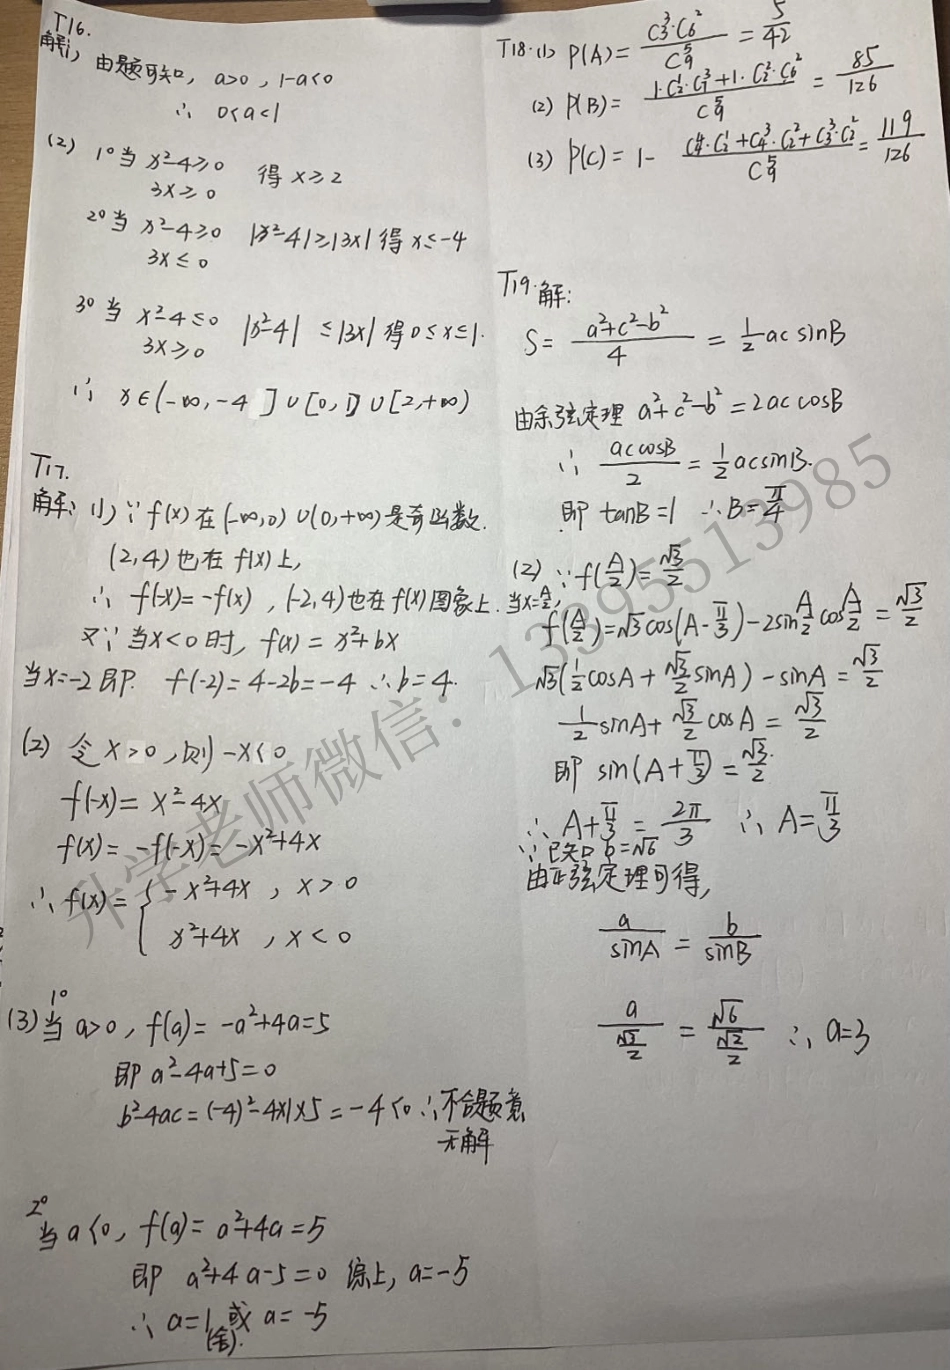 T16.
解:(1) 由题可知, a>0, 1-a<0
∴ 0<a<1
(2) 1° 当 x²-4≥0
3x≥0 得 x≥2
2° 当 x²-4≥0 |x²-4|≥|3x| 得 x≤-4
3x≤0
3° 当 x²-4≤0 |x²-4| ≤|3x| 得 0≤x≤1.
3x≥0
∴ x∈(-∞,-4]∪[0,1]∪[2,+∞)
T17.
解: (1) ∵ f(x) 在 (-∞,0)∪(0,+∞) 是奇函数.
(2,4) 也在 f(x) 上,
∴ f(-x)=-f(x) , (-2,4) 也在 f(x) 图象上.
又∵ 当 x<0 时, f(x) = x²+bx
当 x=-2 即. f(-2)=4-2b=-4 ∴b=4.
(2) 令 x>0, 则 -x<0
f(-x)= x²-4x
f(x)= -f(-x)= -x²+4x
∴ f(x)= { -x²+4x , x>0
x²+4x , x<0
(3) 1° 当 a>0, f(a)= -a²+4a=5
即 a²-4a+5=0
b²-4ac=(-4)²-4×1×5=-4<0 ∴不合题意
无解
2° 当 a<0, f(a)= a²+4a=5
即 a²+4a-5=0 综上, a=-5
∴ a=1 或 a=-5
(舍).
T18.(1) P(A)= C₃³·C₆²/C₉⁵ = 5/42
(2) P(B)= 1·C₂¹·C₇³+1·C₂²·C₆²/C₉⁵ = 85/126
(3) P(C)= 1- C₄⁴·C₂¹+C₄³·C₂²+C₃³·C₂²/C₉⁵ = 119/126
T19. 解:
S= a²+c²-b²/4 = 1/2 ac sinB
由余弦定理 a²+c²-b²=2ac cosB
∴ ac cosB/2 = 1/2 ac sinB.
即 tanB=1 ∴B=π/4
(2) ∵f(A/2)=√3/2
当x=A/2,
f(A/2)=√3cos(A-π/3)-2sinA/2cosA/2=√3/2
√3(1/2cosA+√3/2sinA)-sinA=√3/2
1/2sinA+√3/2cosA=√3/2
即 sin(A+π/3)=√3/2.
∴ A+π/3=2π/3 ∴ A=π/3
∵ 已知 b=√6
由正弦定理可得,
a/sinA = b/sinB
a/(√3/2) = √6/(√2/2) ∴ a=3
升学老师微信：13395513985